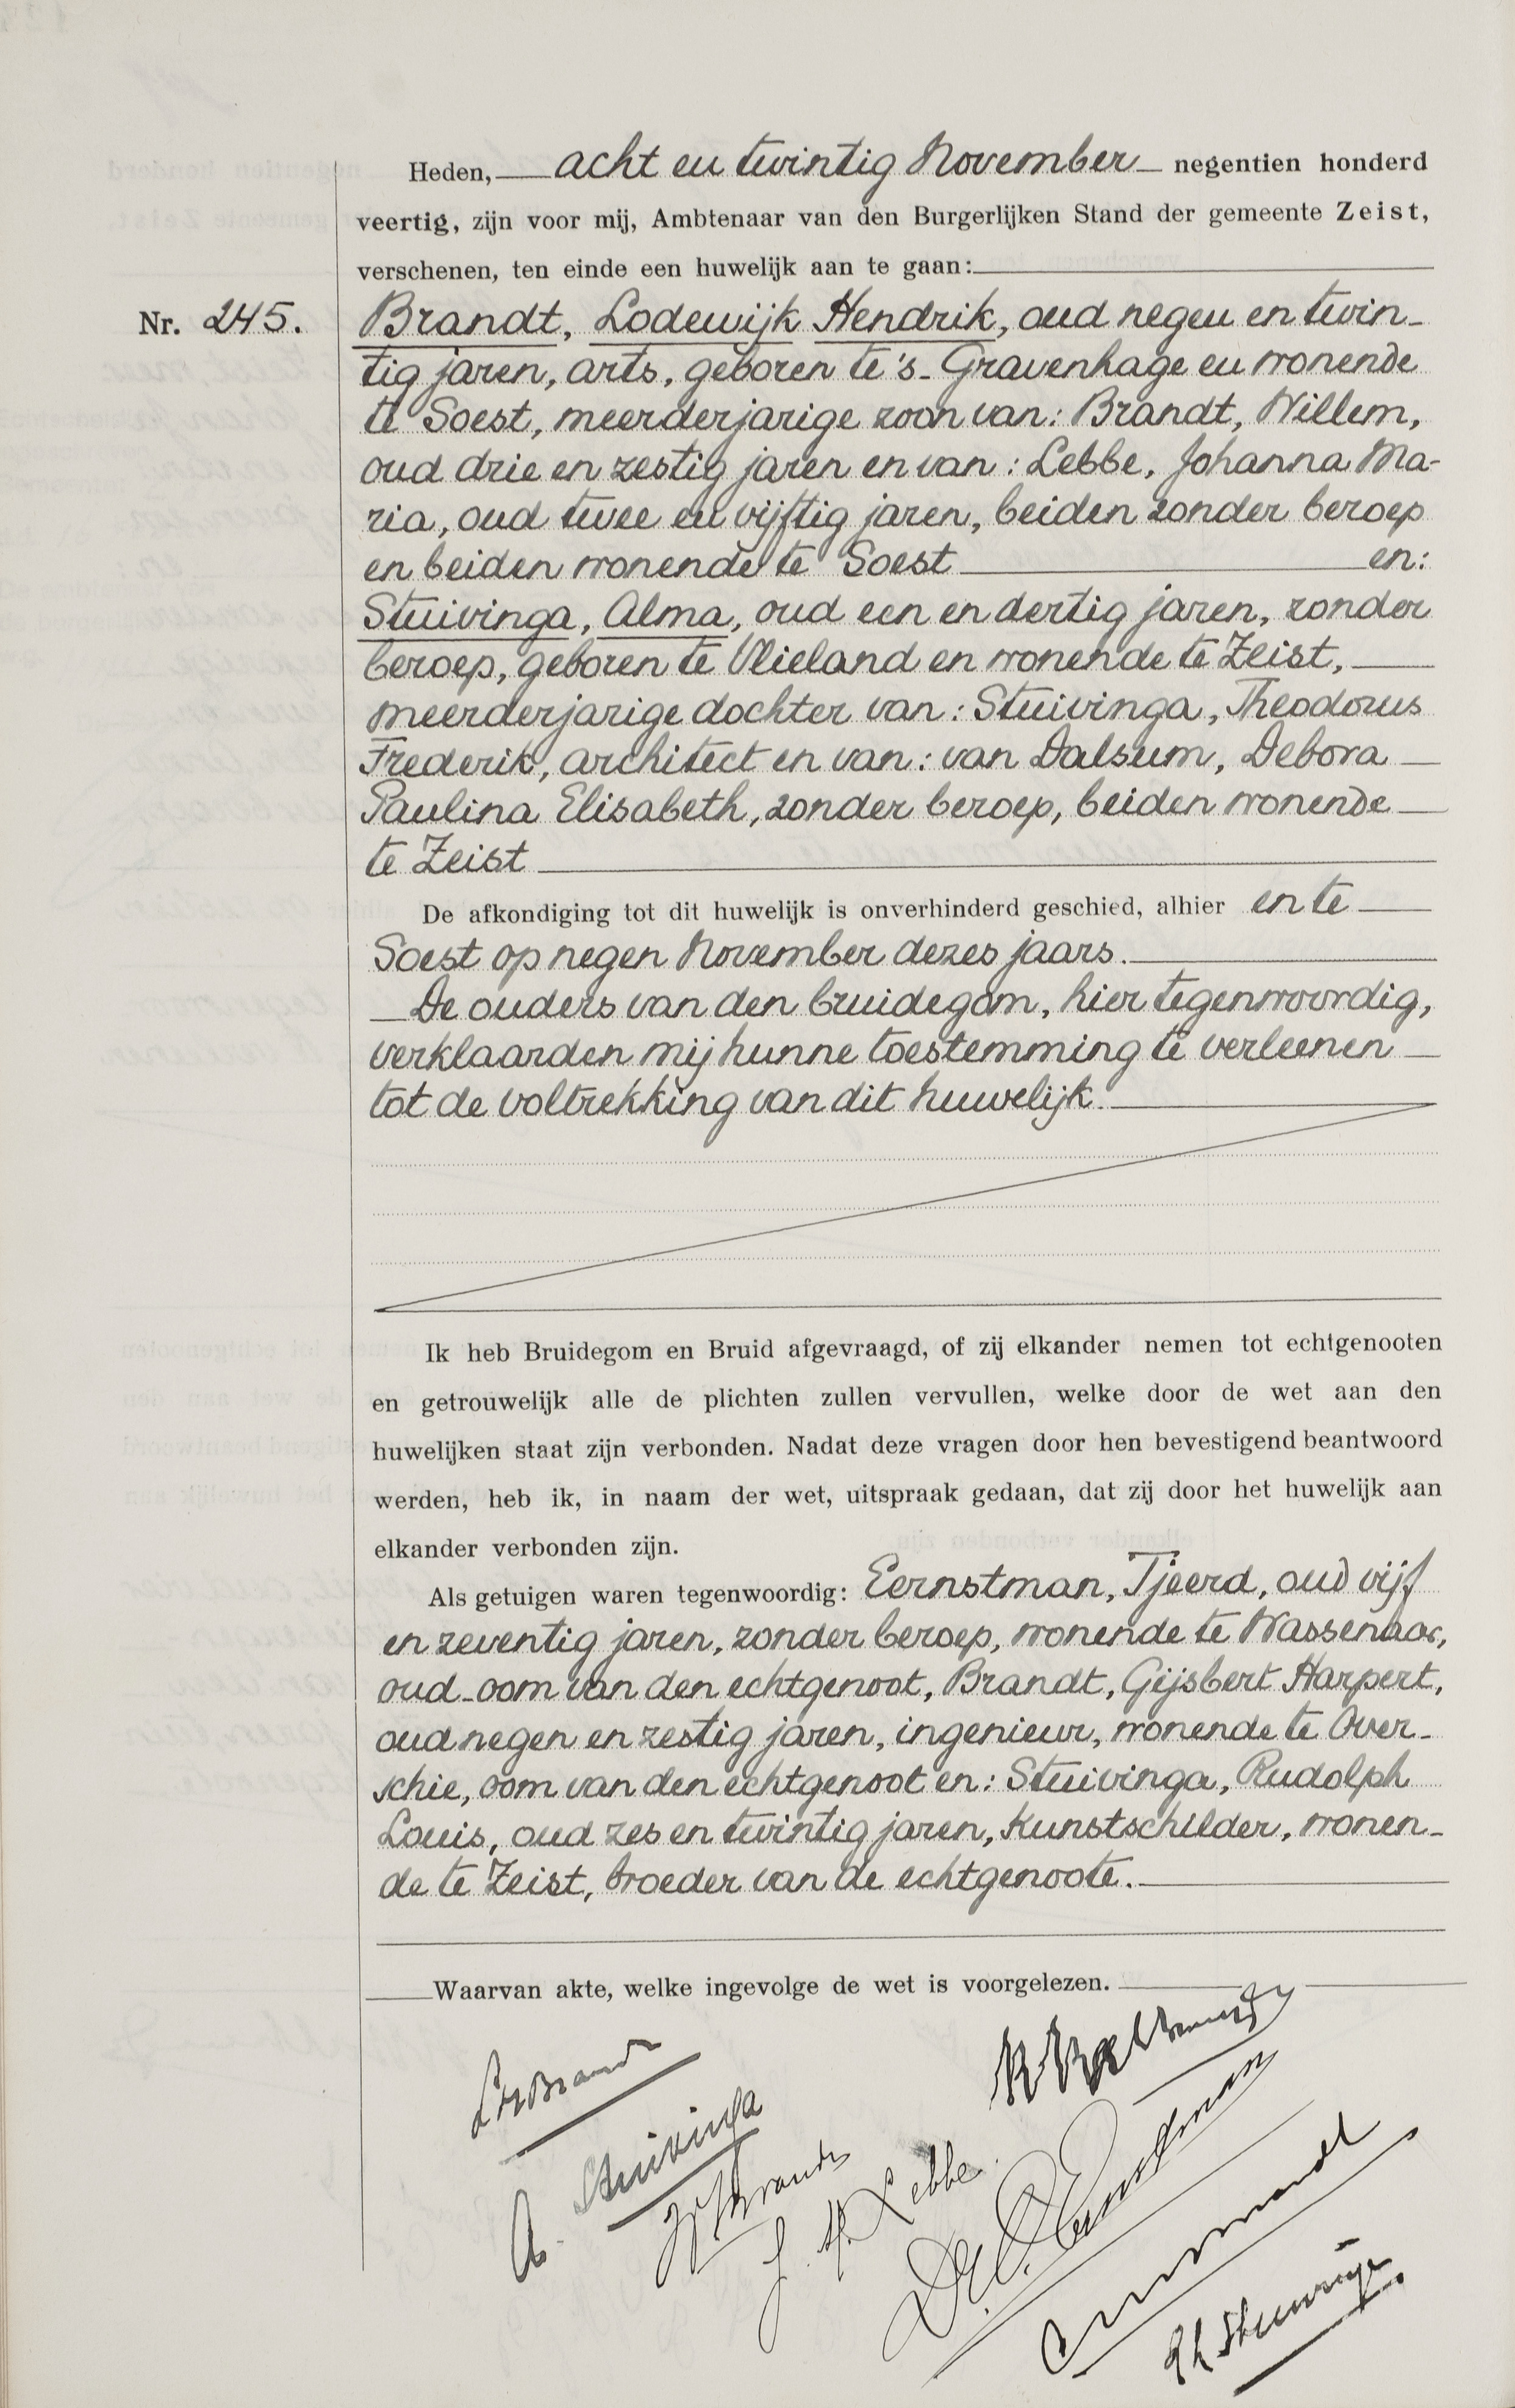 Heden, acht en twintig November negentien honderd
veertig, zijn voor mij, Ambtenaar van den Burgerlijken Stand der gemeente Zeist,
verschenen, ten einde een huwelijk aan te gaan:
Nr. 245. Brandt, Lodewijk Hendrik, oud negen en twin-
tig jaren, arts, geboren te 's-Gravenhage en wonende
te Soest, meerderjarige zoon van: Brandt, Willem,
oud drie en zestig jaren en van: Lebbe, Johanna Ma-
ria, oud twee en vijftig jaren, beiden zonder beroep
en beiden wonende te Soest en:
Stuivinga, Alma, oud een en dertig jaren, zonder
beroep, geboren te Vlieland en wonende te Zeist,
meerderjarige dochter van: Stuivinga, Theodorus
Frederik, architect en van: van Dalsum, Debora
Paulina Elisabeth, zonder beroep, beiden wonende
te Zeist
De afkondiging tot dit huwelijk is onverhinderd geschied, alhier en te
Soest op negen November dezes jaars.
De ouders van den bruidegom, hier tegenwoordig,
verklaarden mij hunne toestemming te verleenen
tot de voltrekking van dit huwelijk.
Ik heb Bruidegom en Bruid afgevraagd, of zij elkander nemen tot echtgenooten
en getrouwelijk alle de plichten zullen vervullen, welke door de wet aan den
huwelijken staat zijn verbonden. Nadat deze vragen door hen bevestigend beantwoord
werden, heb ik, in naam der wet, uitspraak gedaan, dat zij door het huwelijk aan
elkander verbonden zijn.
Als getuigen waren tegenwoordig: Eernstman, Tjeerd, oud vijf
en zeventig jaren, zonder beroep, wonende te Wassenaar,
oud-oom van den echtgenoot, Brandt, Gijsbert Harpert,
oud negen en zestig jaren, ingenieur, wonende te Over-
schie, oom van den echtgenoot en: Stuivinga, Rudolph
Louis, oud zes en twintig jaren, kunstschilder, wonen-
de te Zeist, broeder van de echtgenoote.
Waarvan akte, welke ingevolge de wet is voorgelezen.
LHBrandt
A. Stuivinga
Brandt
J. M. Lebbe.
Eernstman
Stuivinga